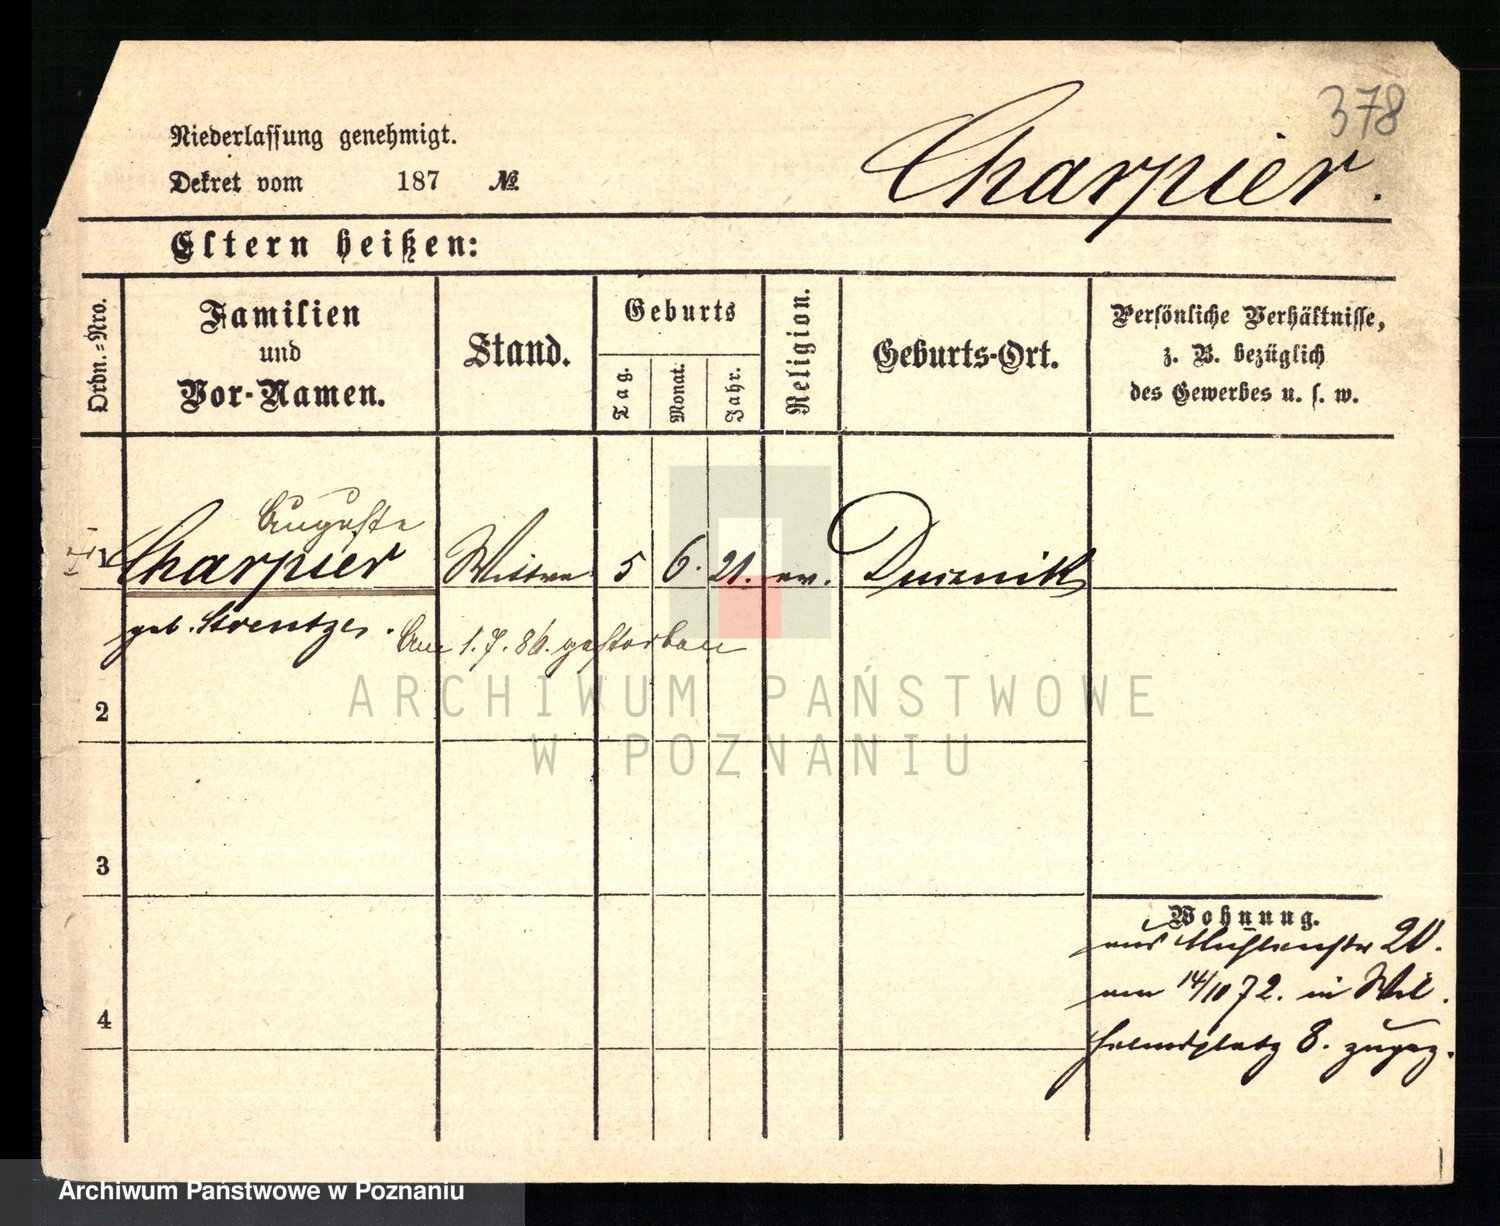 378
Niederlassung genehmigt.
Dekret vom 187 №
Charpier.
Eltern heißen:
Ordn.-Nro.
Familien
und
Vor-Namen.
Stand.
Geburts
Tag.
Monat.
Jahr.
Religion.
Geburts-Ort.
Persönliche Verhältnisse,
z. B. bezüglich
des Gewerbes u. s. w.
Auguste
1 Charpier Wittwe 5 6. 21. ev. Dusznik
geb. Strentzel.
Am 1.7.86. gestorben
ARCHIWUM PAŃSTWOWE
W POZNANIU
2
3
4
Wohnung.
aus Mühlenstr 20.
am 14/10 72. in Wil
helmsplatz 8. zugez.
Archiwum Państwowe w Poznaniu